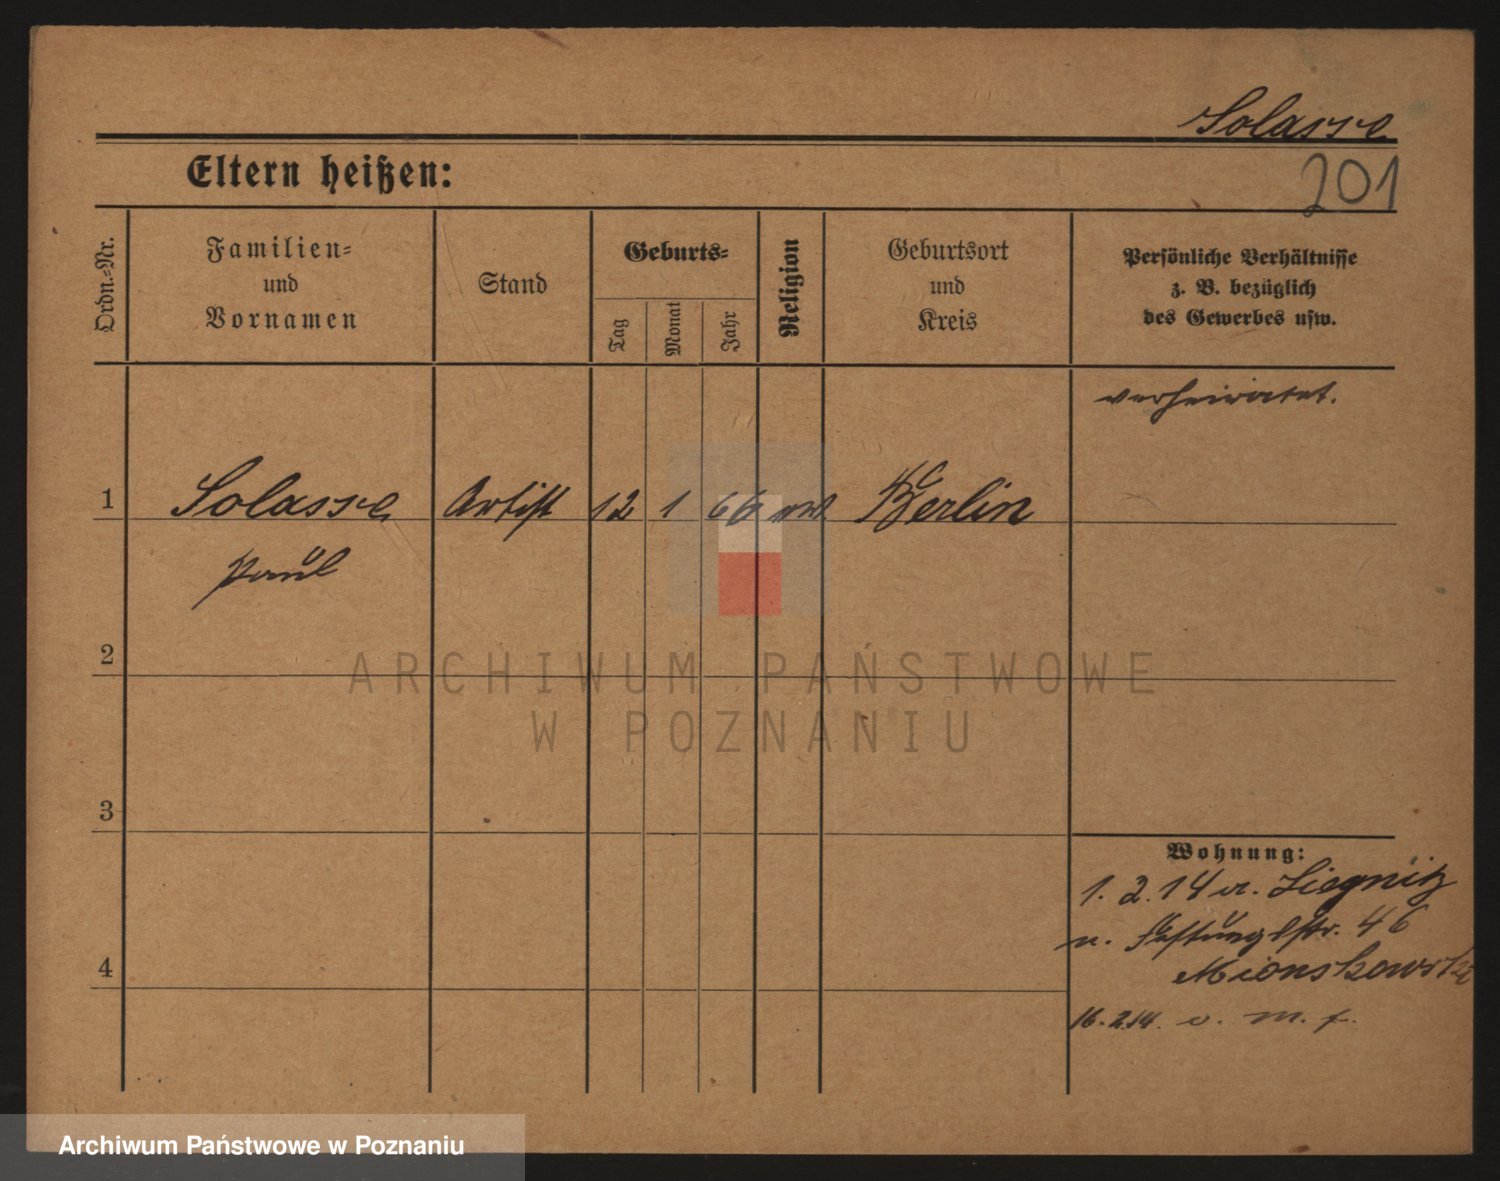 Solasse
Eltern heißen:
201
Ordn.-Nr.
Familien-
und
Vornamen
Stand
Geburts-
Tag
Monat
Jahr
Religion
Geburtsort
und
Kreis
Persönliche Verhältnisse
z. B. bezüglich
des Gewerbes usw.
verheiratet.
1
Solasse
Artist
12
1
66
Berlin
Paul
2
ARCHIWUM PAŃSTWOWE
W POZNANIU
3
Wohnung:
1. 2. 14 a. Liegnitz
n. Festungsstr. 46
4
16. 2. 14.
Archiwum Państwowe w Poznaniu